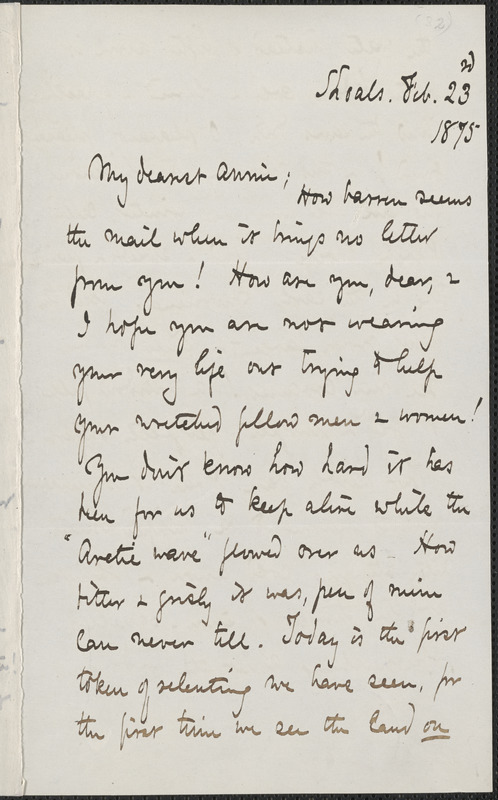 Shoals. Feb. 23rd
1875
My dearest Annie;
How barren seems
the mail when it brings no letter
from you! How are you, dear, &
I hope you are not wearing
your very life out trying to help
your wretched fellow men & women!
You don't know how hard it has
been for us to keep alive while the
"Arctic wave" flowed over us - How
bitter & grisly it was, pen of mine
can never tell. Today is the first
token of relenting we have seen, for
the first time we see the land on